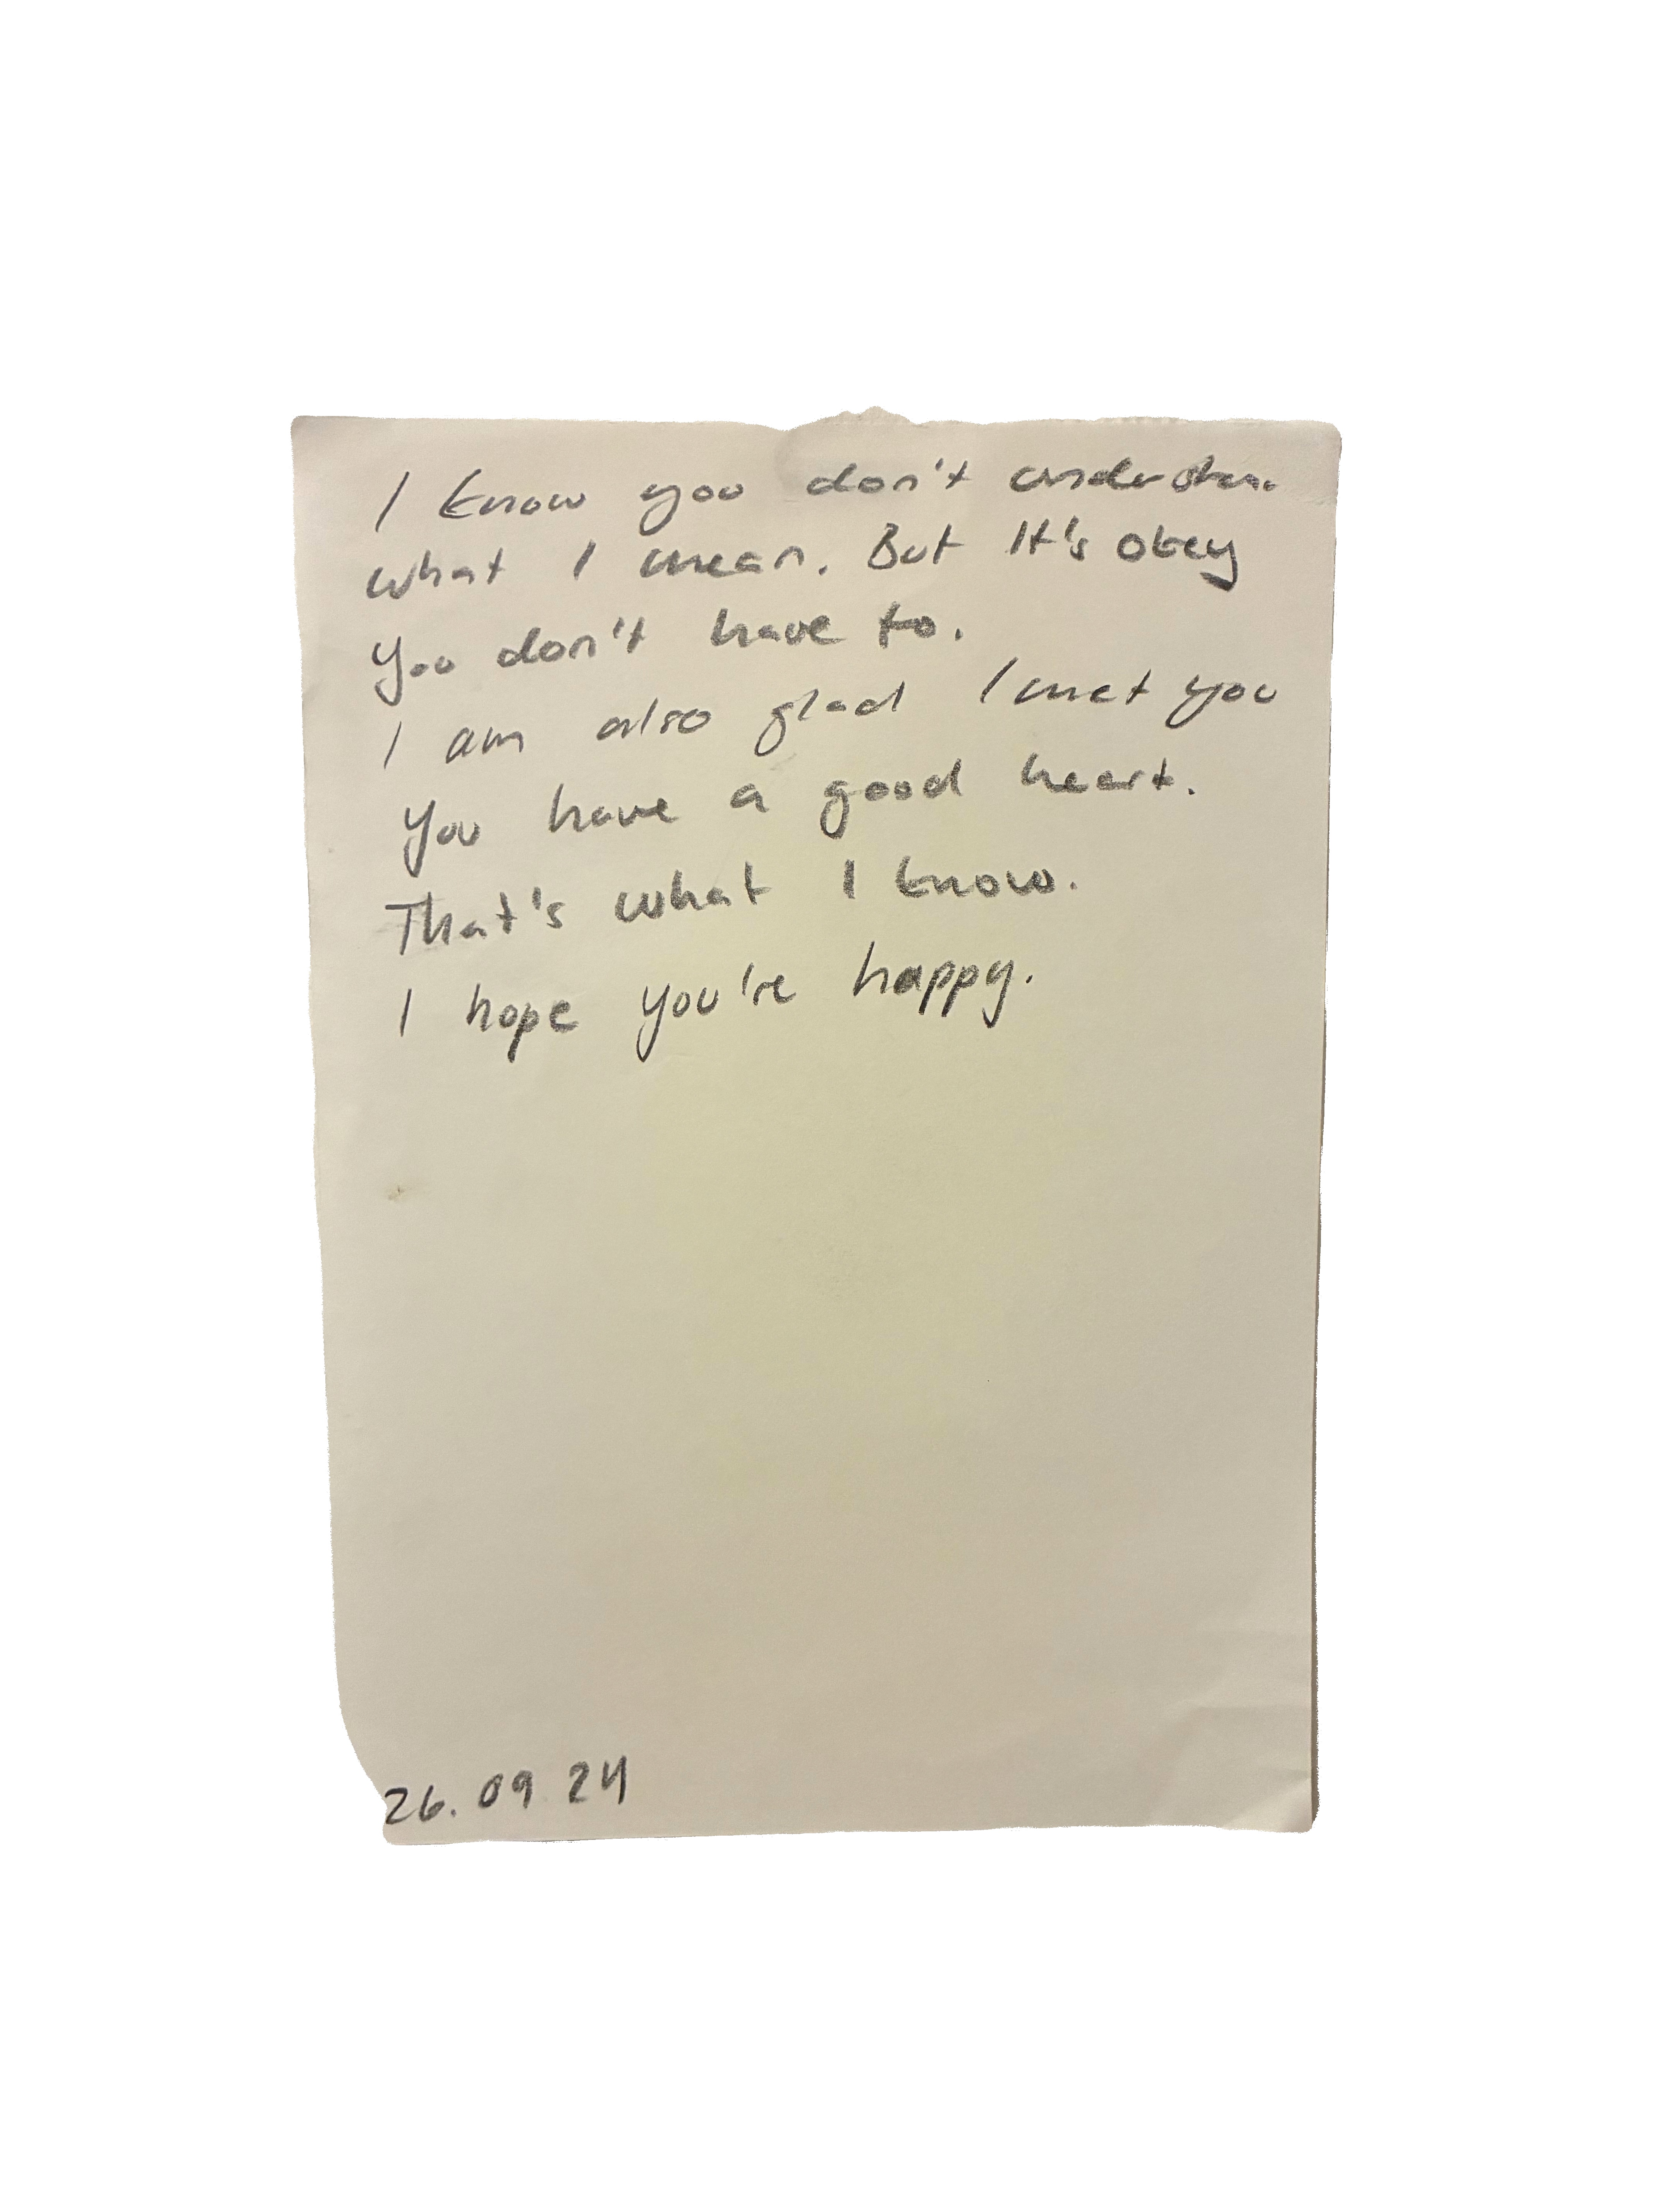 I know you don't understan
what I mean. But It's okey
you don't have to.
I am also glad I met you
You have a good heart.
That's what I know.
I hope you're happy.
26. 09 24